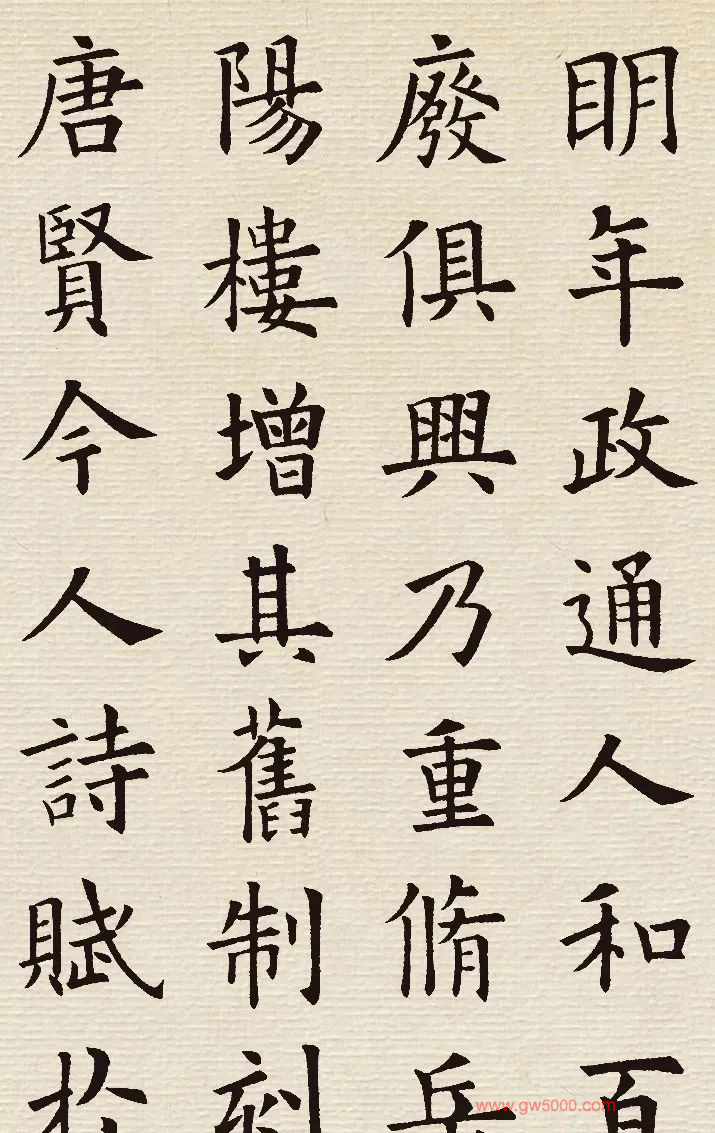 眀年政通人和百
廢俱興乃重脩岳
陽樓增其舊制刻
唐賢今人詩賦於
www.gw5000.com